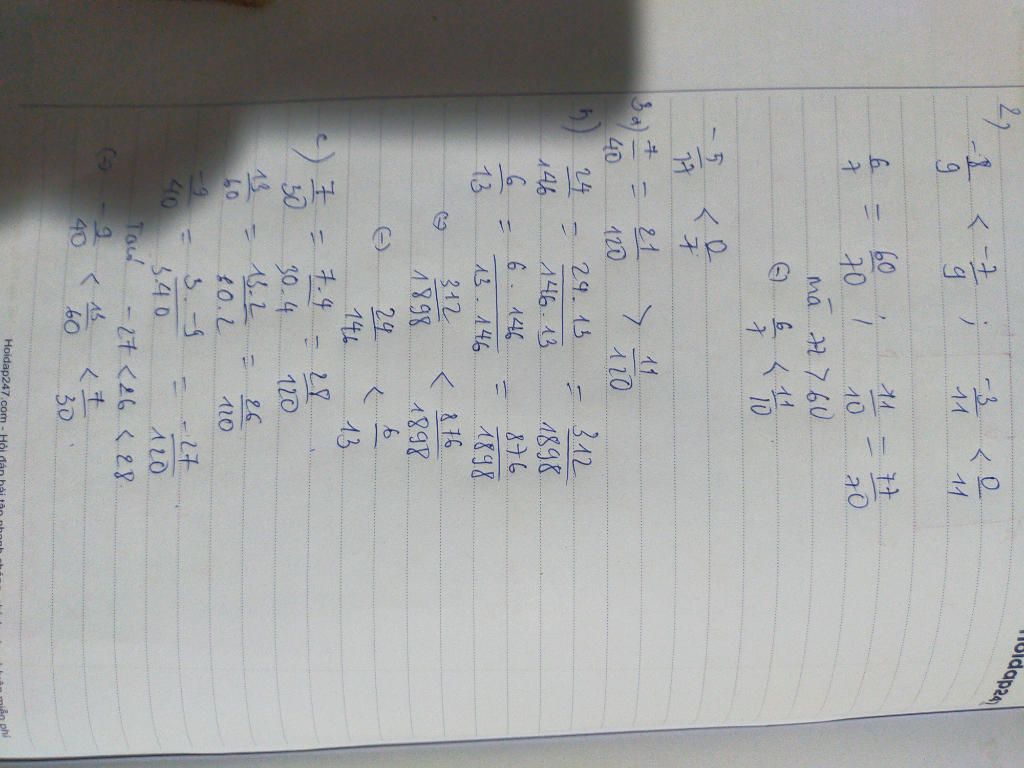 Hoidap247
2) -8/9 < -7/9 ; -3/11 < 0/11
6/7 = 60/70 ; 11/10 = 77/70
mà 77 > 60
(=) 6/7 < 11/10
-5/17 < 0/7
3a) 7/40 = 21/120 > 11/120
b) 24/146 = 24.13/146.13 = 312/1898
6/13 = 6.146/13.146 = 876/1898
(=) 312/1898 < 876/1898
(=) 24/146 < 6/13
c) 7/30 = 7.4/30.4 = 28/120
13/60 = 13.2/60.2 = 26/120
-9/40 = 3.-9/3.40 = -27/120
Ta có -27 < 26 < 28
(=) -9/40 < 13/60 < 7/30.
Hoidap247.com - Hỏi đáp bài tập nhanh chóng, miễn phí